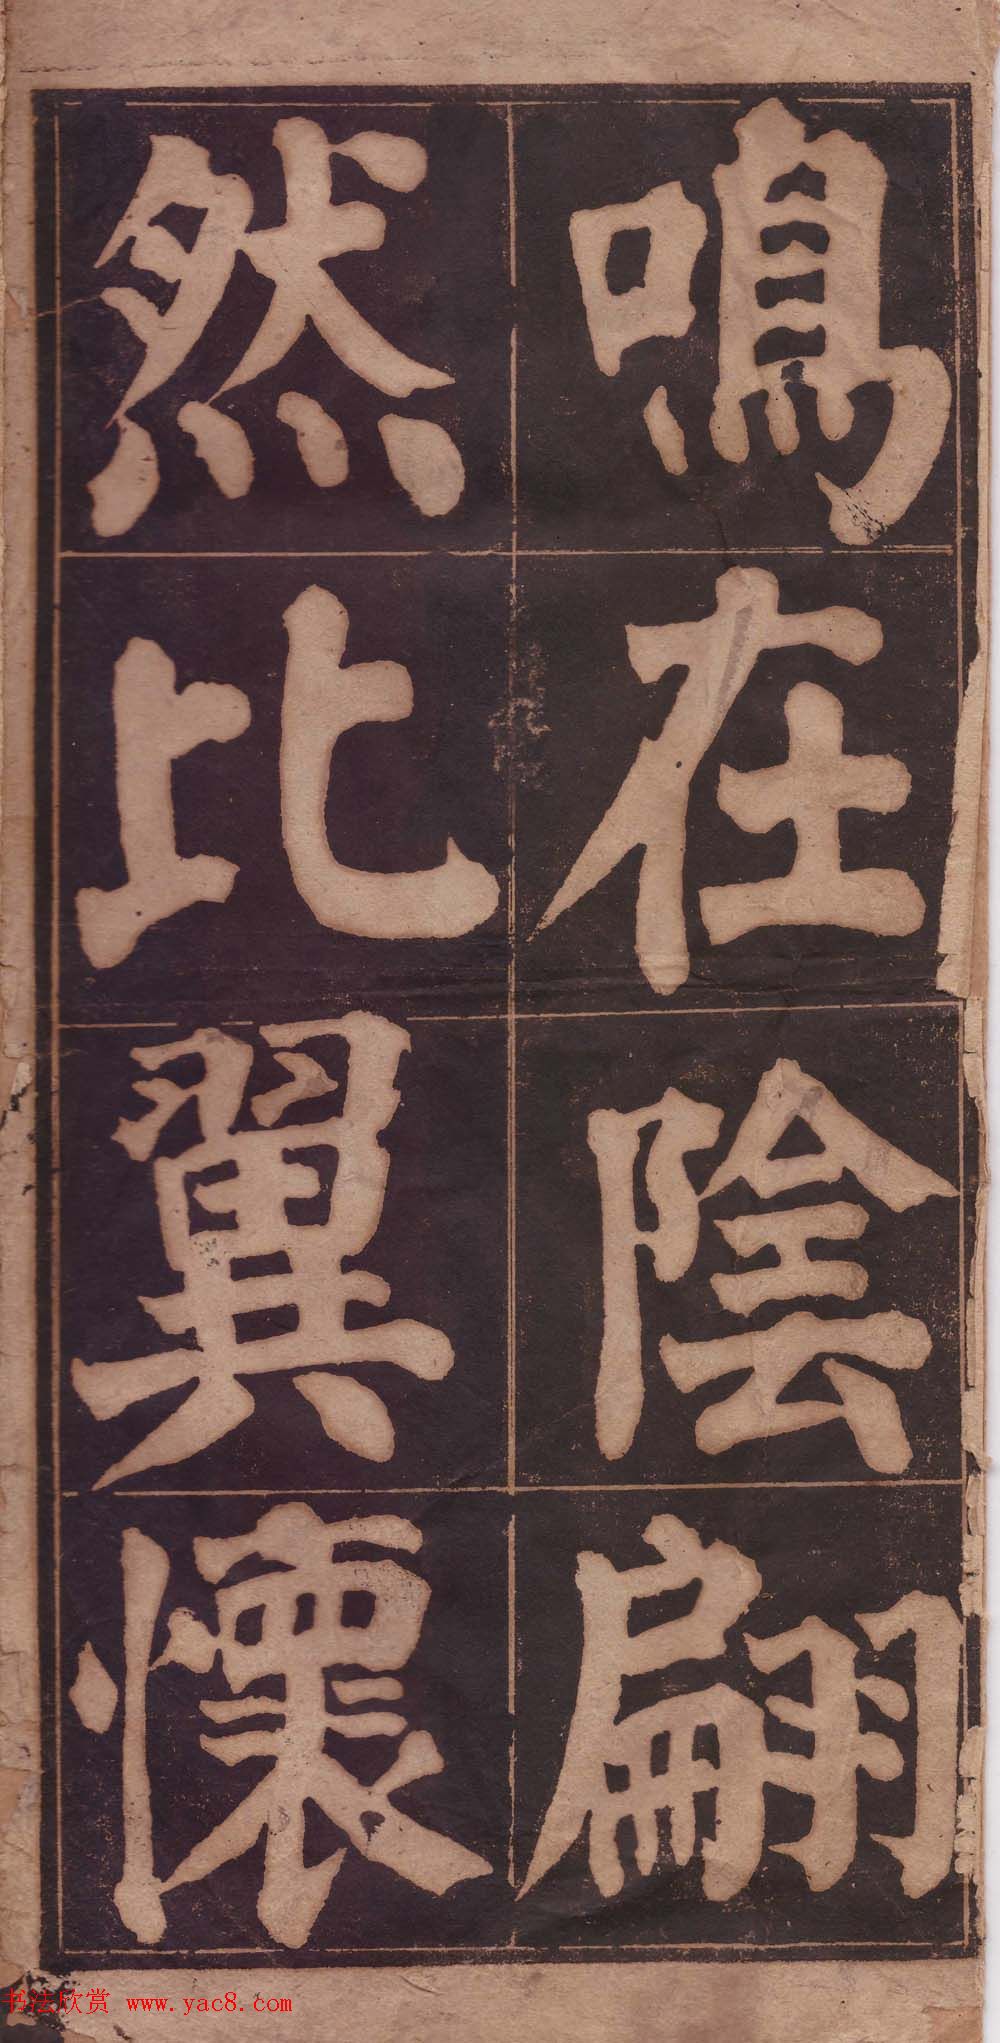 鳴在陰翩
然比翼懷
书法欣赏 www.yac8.com